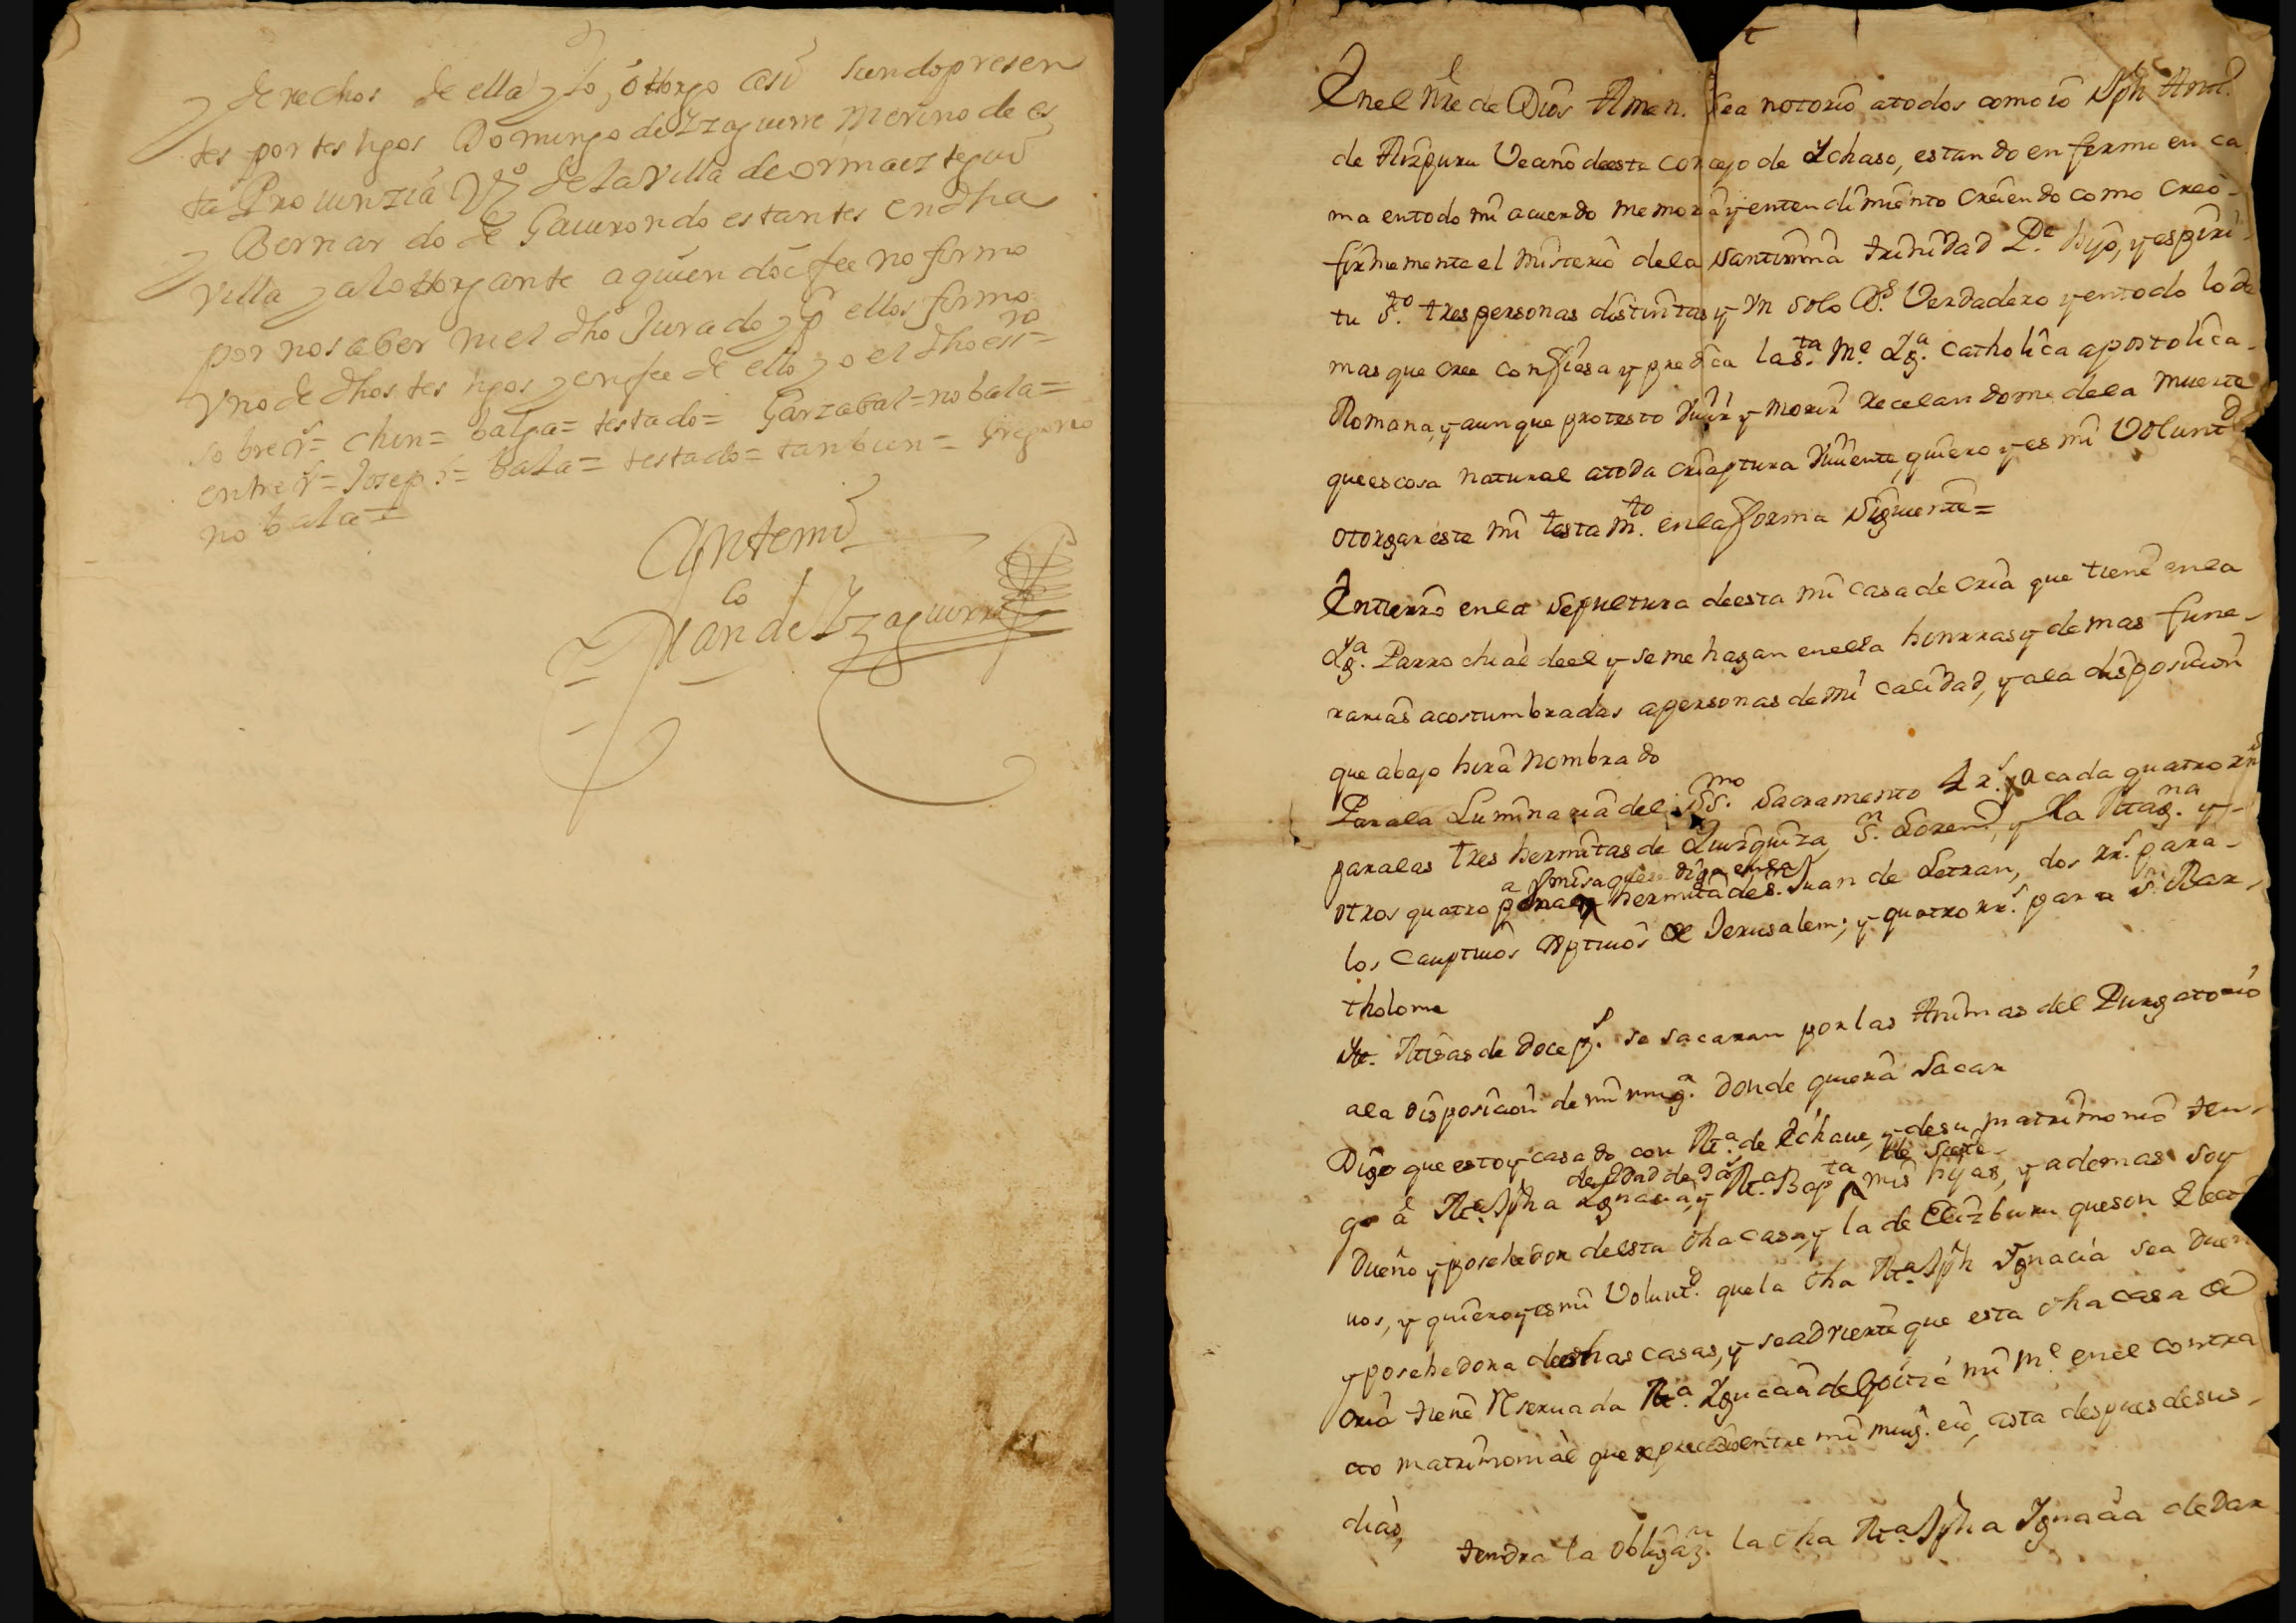 y derechos de ella y lo, otorgo asi siendo presen
tes por testigos Domingo de Yzaguirre Merino de es
ta Prouinzia Vº de la villa de ormaiztegui
y Bernardo de Gauirondo estantes en dha
villa y al otorgante a quien doi fee no firmo
por no saber ni el dho Jurado y P ellos firmo
vno de dhos testigos y en fee de ello yo el dho essno=
sobre rº= chin= balga= testado= Garzabal=no bala=
entre rº= Josep = bala= testado= tanbien= Gregorio
no bala=
Antemi
Juan de Yzaguirre
En el Nre de Dios Amen. Sea notorio atodos como io Jph Antº
de Aizpuru Vecino deeste concejo de Ychaso, estando enfermo en ca
ma entodo mi acuerdo memoria y entendimiento Creiendo como creo
firmemente el misterio dela Santissima trinidad Pe. hijo, y espiri
tu Sto. tres personas distintas y Vn solo Ds. Verdadero y entodo lo de
mas que cree confiesa y predica la sta. Me. Yga. catholica apostolica
Romana, y aunque protesto viuir y Morir Recelandome dela Muerte
que es cosa natural atoda criaptura viuiente, quiero y es mi Voluntd
otorgar este mi testamto. en la forma Siguiente=
Entierro en la Sepultura deesta mi casa de cria que tiene en la
Yga. Parrochial deel y se me hagan en ella honrras y demas fune-
rarias acostumbradas apersonas de mi calidad, y ala disposicion
que abajo hira Nombrado
Para la Luminaria del SSmo. Sacramento 4 rs. y a cada quatro rrs
para las tres hermitas de Quizquiza, Sn. Loren, y La Magna. y-
a Pmisa que se diga en ella
otros quatro para la hermita de S. Juan de Letran, dos rrs. para-
los Cauptiuos de Jerusalem; y quatro rrs. para Sn. Bar-
tholome
Yte. Misas de doce ps. se sacaran por las Animas del Purgatorio
ala disposicion de mi mugr. donde quiera Sacar
Digo que estoy casado con Ma. de Echaue, y de su matrimonio ten-
de edad de Ds de siete
go a Ma. Jpha Ygnacia, y Ma. Bapta mis hijas, y ademas soy
Dueño y posehedor deesta dha casa, y la de Elizburu que son
uos, y quiero y es mi Voluntd. que la dha Ma. Jph Ygnacia sea Dueñ
y posehedora de dhas casas, y se advierte que esta dha casa de
cria tiene Reseruada Ma. Ygnacia de Goitia mi Me. en el contra
cto matrimonial que se precedio entre mi mugr. e io, asta despues de sus
dias,
tendra la obligazn. la dha Ma. Jpha Ygnacia de Dar